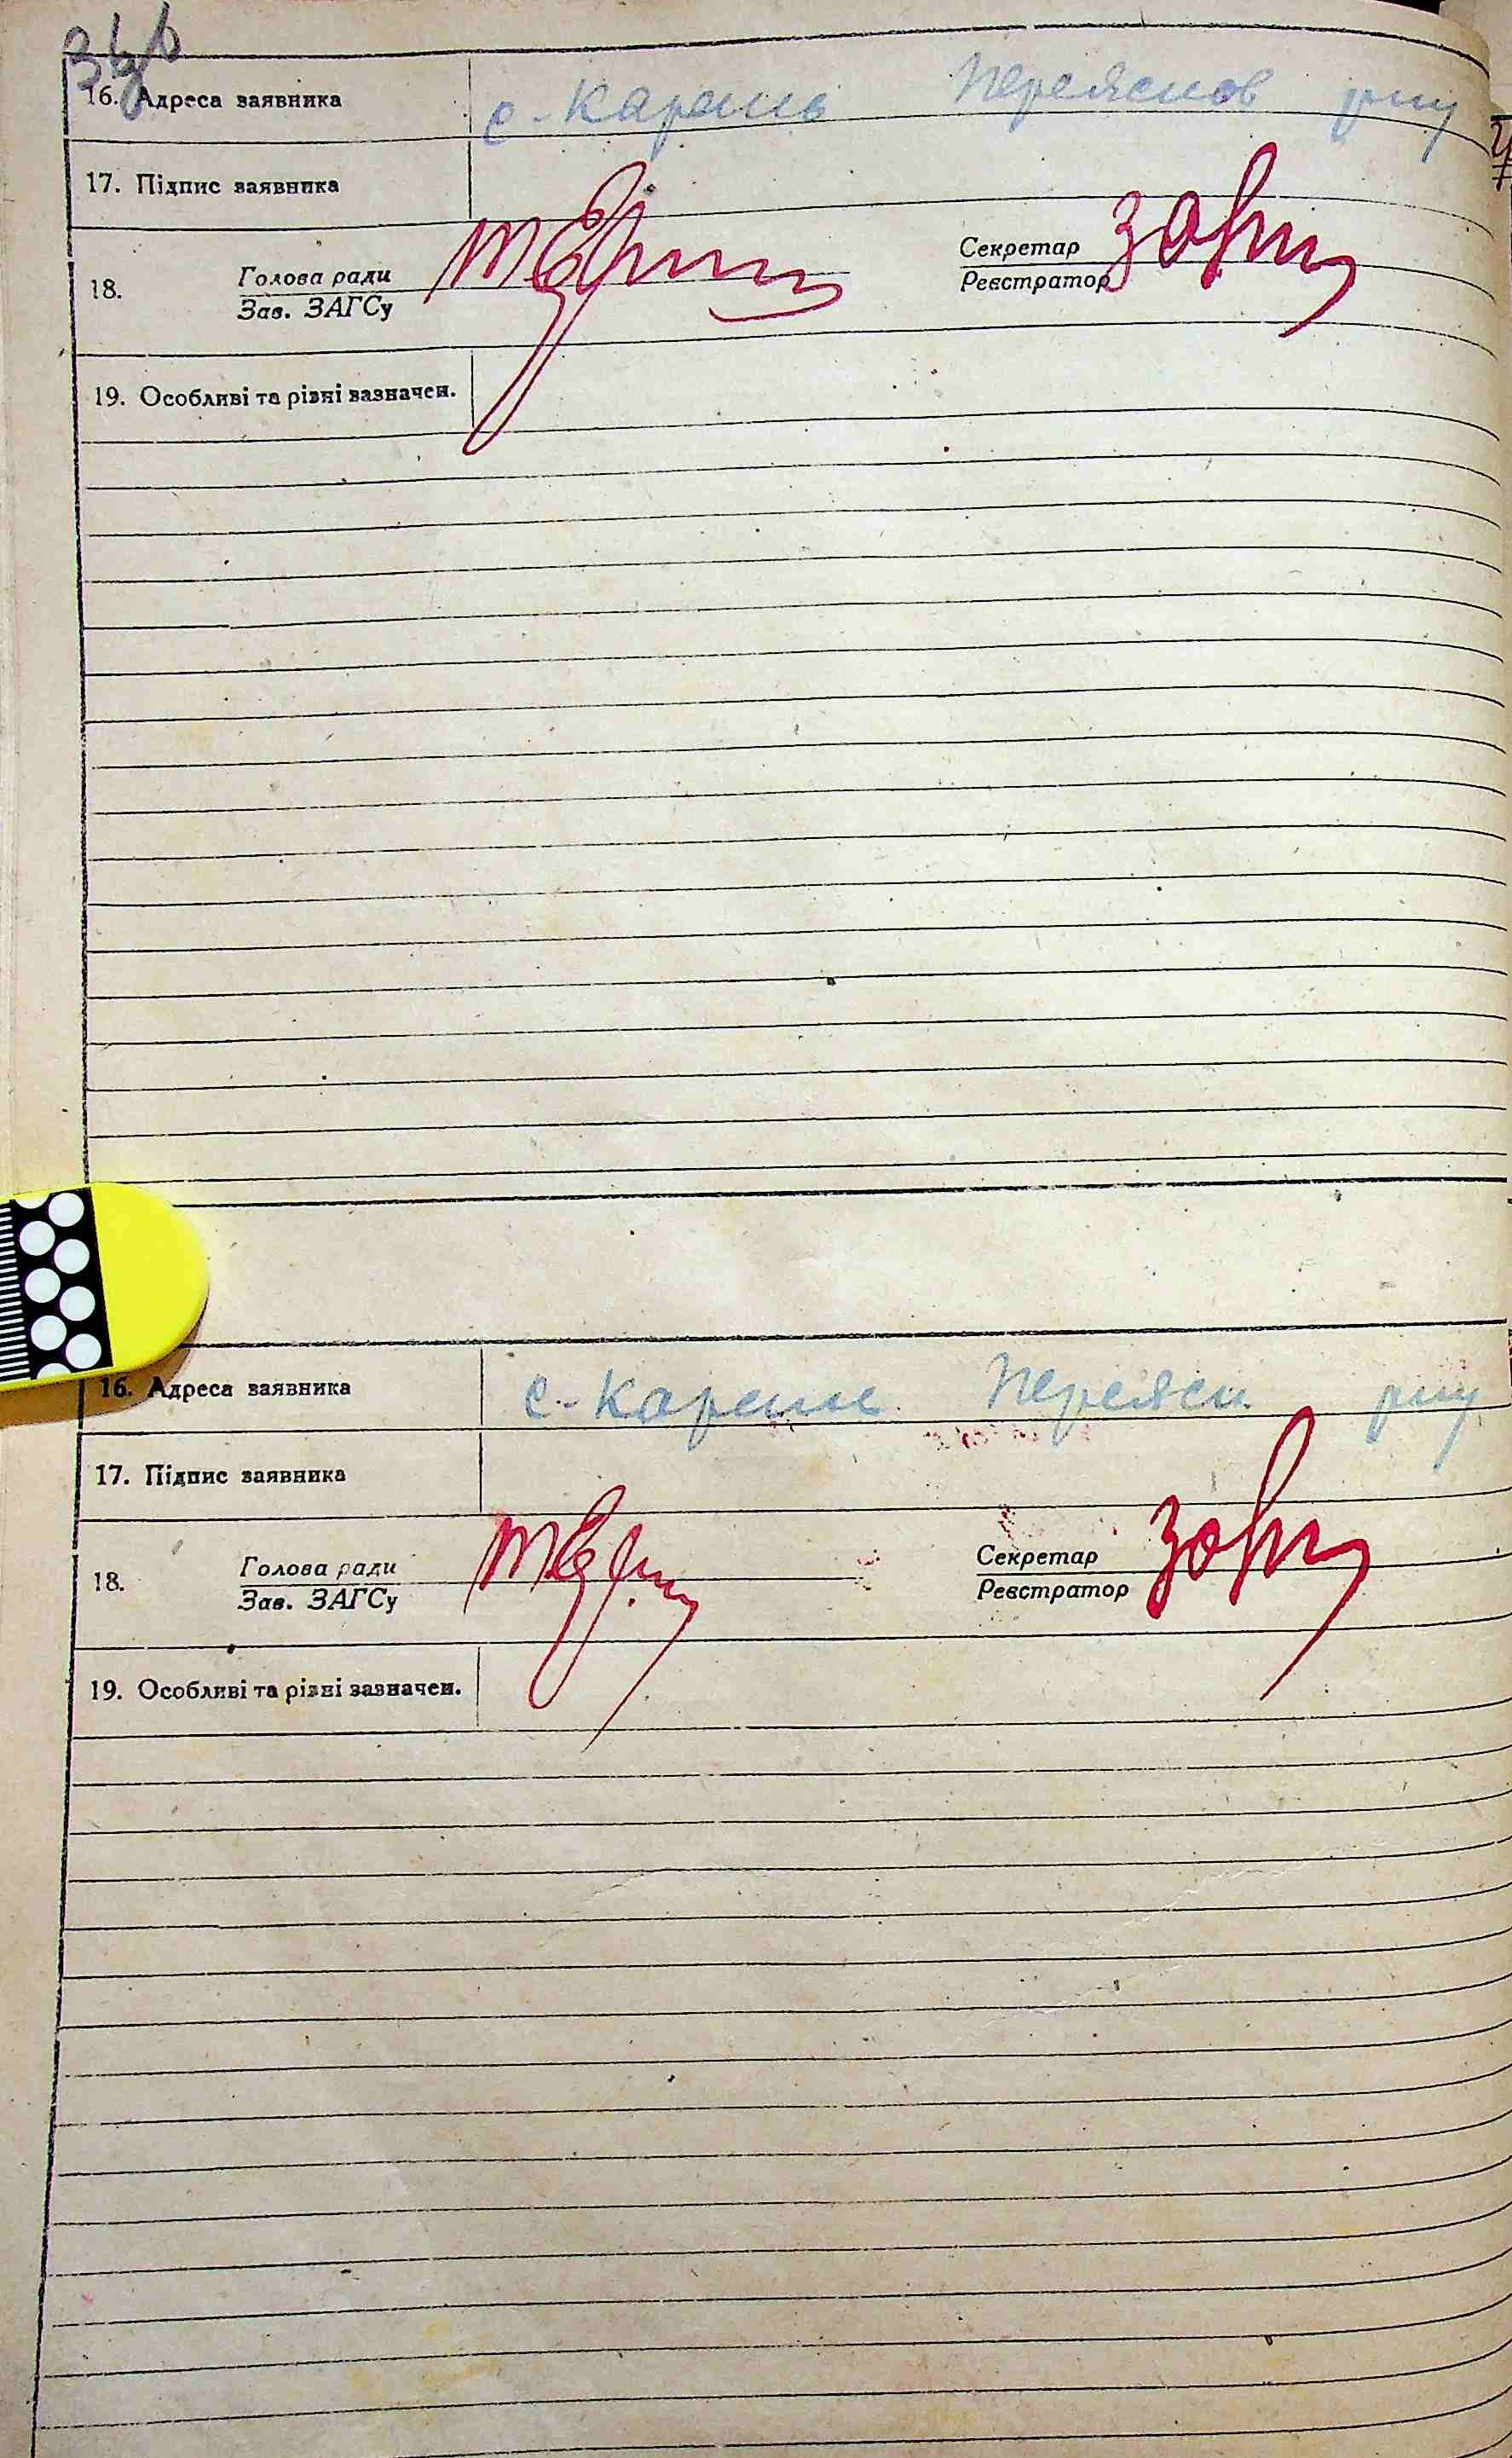 16. Адреса заявника с-Карань Переяснов рну
17. Підпис заявника
18. Голова ради Секретар
Зав. ЗАГСу Реєстратор
19. Особливі та різні вазначен.
16. Адреса заявника с-Карань Переясн рну
17. Підпис заявника
18. Голова ради Секретар
Зав. ЗАГСу Реєстратор
19. Особливі та різні зазначен.